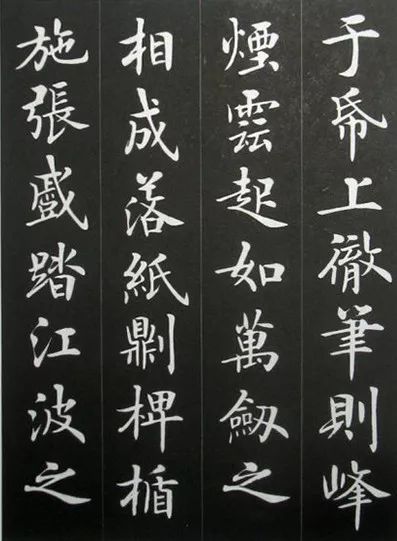 于帋上徹筆則峰
煙雲起如萬劔之
相成落紙𠟭椑楯
施張踏江波之